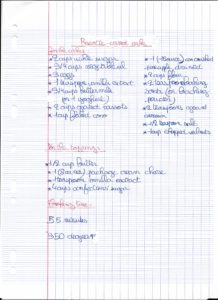 carrot cake
For the cake:
* 2 cups white sugar
* 3/4 cups vegetable oil
* 3 eggs
* 1 teaspoon vanilla extract
* 3/4 cups buttermilk
(or 1 yoghurt)
* 2 cups carrots
* 1 cup flaked coconut
* 1 (15 ounce) can crushed
pineapple, drained
* 2 cups flour
* 2 baking
soda (or baking
powder)
* 2 teaspoons ground
cinnamon
* 1/2 teaspoon salt
* 1 cup chopped walnuts
For the
* 1/2 cup butter
* 1 (8 ounces) package cream cheese
* 1 teaspoon vanilla extract
* 4 cups confectioners' sugar
55 minutes
350 degrees F